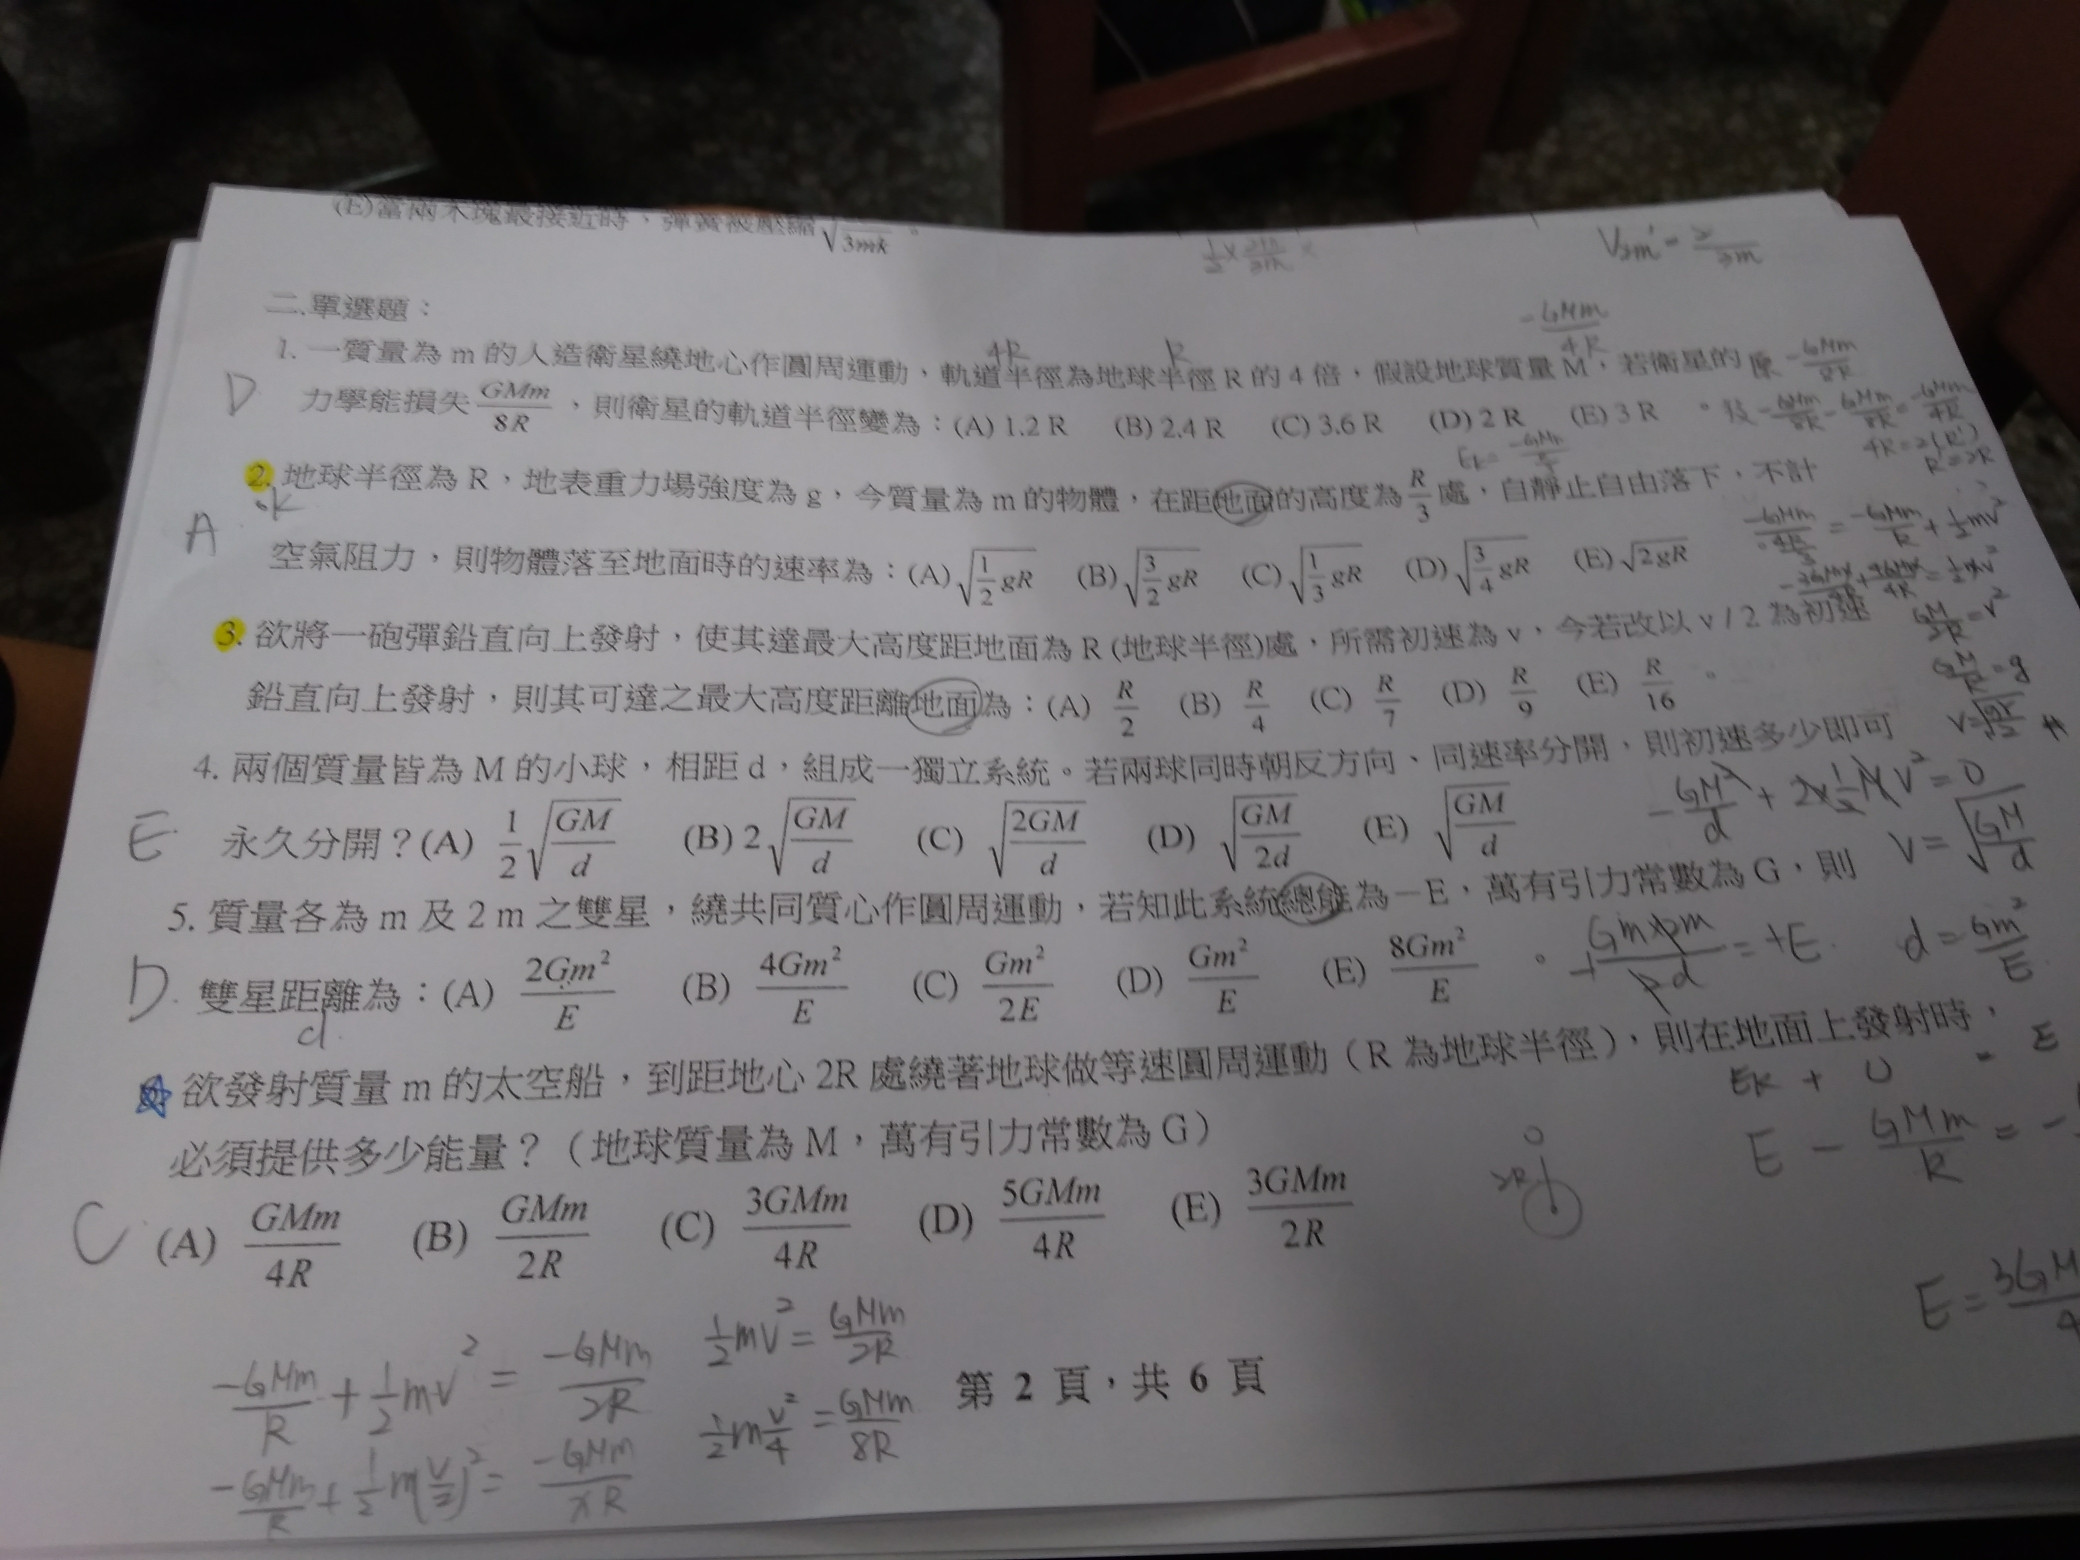 (E)當兩木塊最接近時，彈簧被壓縮√3mk。
二.單選題：
1. 一質量為 m 的人造衛星繞地心作圓周運動，軌道半徑為地球半徑 R 的 4 倍，假設地球質量 M，若衛星的
4R R -GMm/4R 原 -GMm/8R
D 力學能損失 GMm/8R ，則衛星的軌道半徑變為：(A) 1.2 R (B) 2.4 R (C) 3.6 R (D) 2 R (E) 3 R 。
-GMm/8R - GMm/8R = -GMm/4R
4R=2(R')
R=2R
2. 地球半徑為 R，地表重力場強度為 g，今質量為 m 的物體，在距地面的高度為 R/3 處，自靜止自由落下，不計
A 空氣阻力，則物體落至地面時的速率為：(A) √(1/2 gR) (B) √(3/2 gR) (C) √(1/3 gR) (D) √(3/4 gR) (E) √2gR
= -GMm/R + 1/2 mv²
GM/2R = v²
3. 欲將一砲彈鉛直向上發射，使其達最大高度距地面為 R (地球半徑)處，所需初速為 v，今若改以 v / 2 為初速
鉛直向上發射，則其可達之最大高度距離地面為：(A) R/2 (B) R/4 (C) R/7 (D) R/9 (E) R/16 。
4. 兩個質量皆為 M 的小球，相距 d，組成一獨立系統。若兩球同時朝反方向、同速率分開，則初速多少即可
-GM²/d + 2×1/2 MV² = 0
E 永久分開？(A) 1/2 √(GM/d) (B) 2 √(GM/d) (C) √(2GM/d) (D) √(GM/2d) (E) √(GM/d)
V = √(GM/d)
5. 質量各為 m 及 2 m 之雙星，繞共同質心作圓周運動，若知此系統總能為－E，萬有引力常數為 G，則
D. 雙星距離為：(A) 2Gm²/E (B) 4Gm²/E (C) Gm²/2E (D) Gm²/E (E) 8Gm²/E 。
d.
Gm×2m/2d = +E. d = Gm²/E
欲發射質量 m 的太空船，到距地心 2R 處繞著地球做等速圓周運動（R 為地球半徑），則在地面上發射時，
必須提供多少能量？（地球質量為 M，萬有引力常數為 G）
EK + U = E
E - GMm/R = -
2R
C (A) GMm/4R (B) GMm/2R (C) 3GMm/4R (D) 5GMm/4R (E) 3GMm/2R
E = 3GM/4
-GMm/R + 1/2 mv² = -GMm/2R 1/2 mv² = GMm/2R
-GMm/R + 1/2 m(v/2)² = -GMm/xR 1/2 m v²/4 = GMm/8R
第 2 頁，共 6 頁